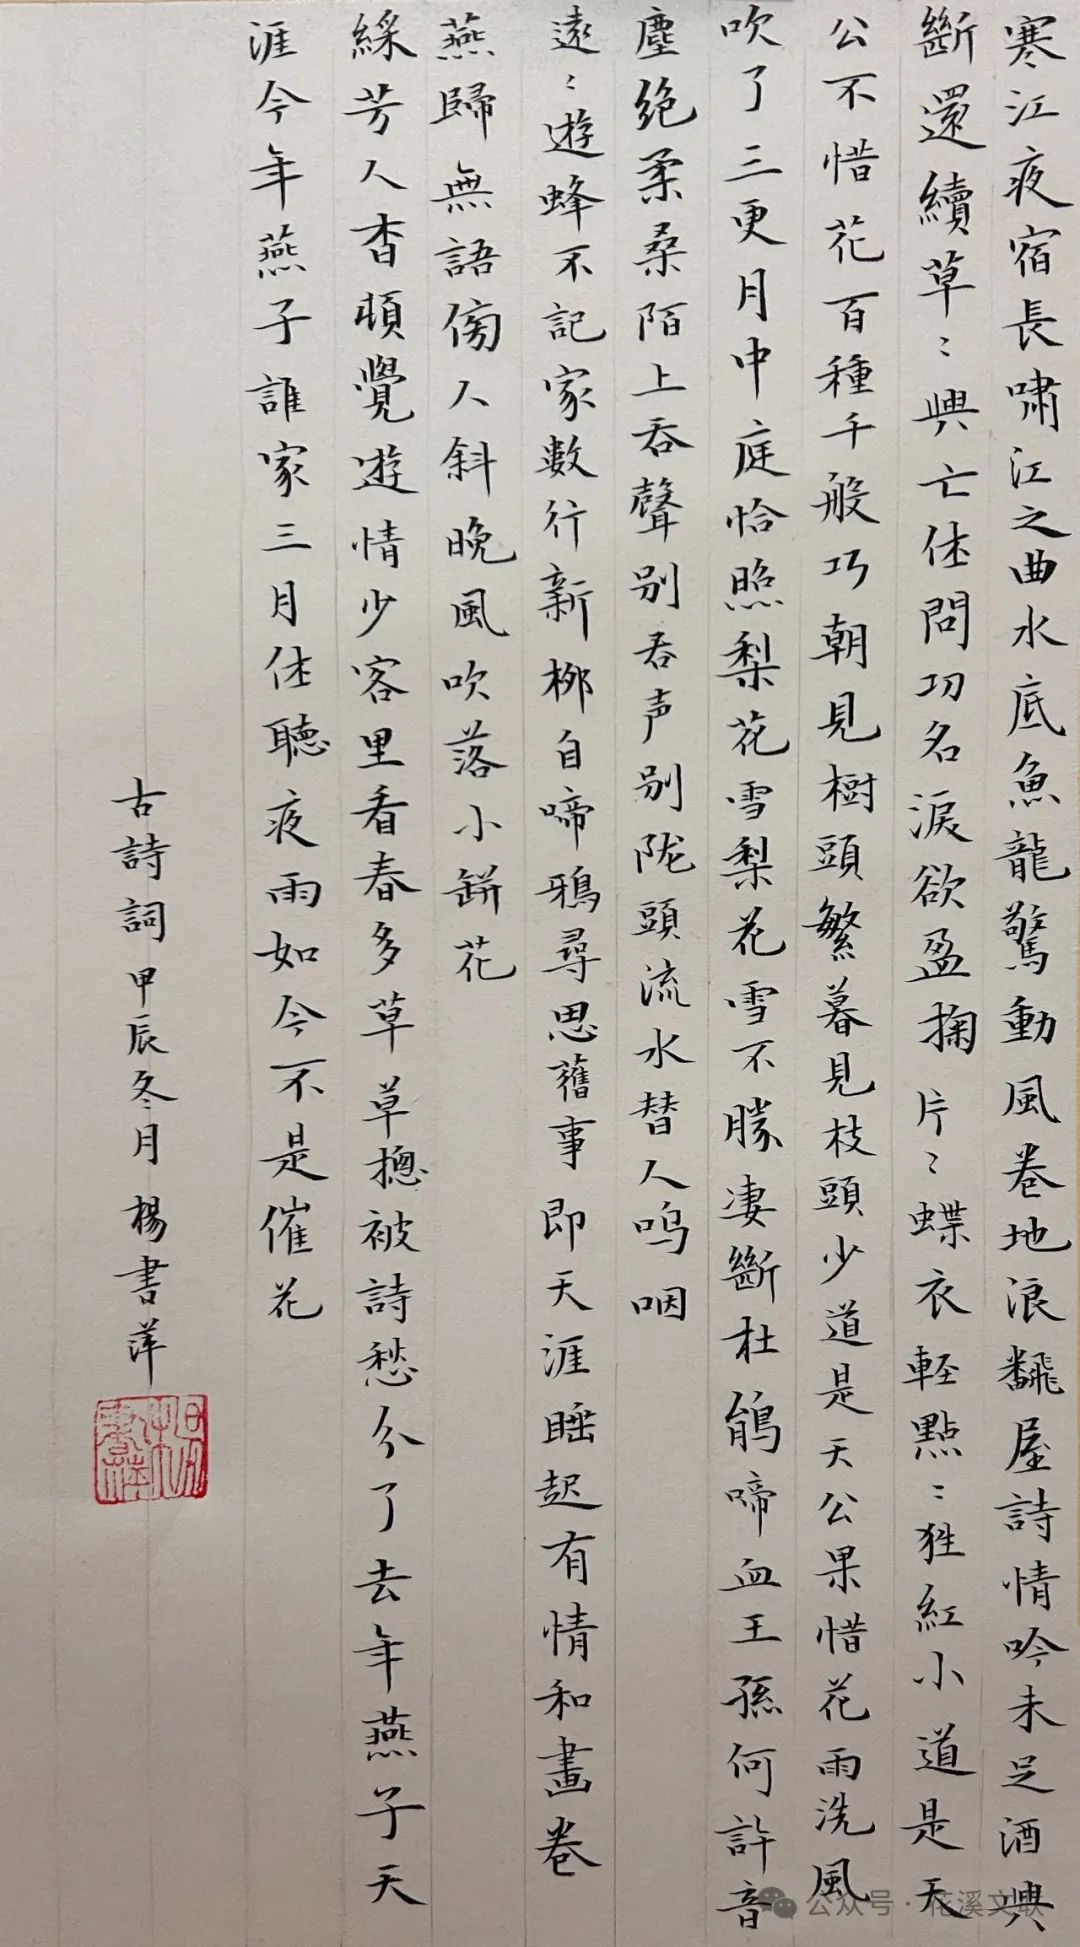 寒江夜宿長嘯江之曲水底魚龍驚動風卷地浪翻屋詩情吟未足酒興
斷還續草〻興亡休問功名淚欲盈掬片〻蝶衣輕點〻猩紅小道是天
公不惜花百種千般巧朝見樹頭繁暮見枝頭少道是天公果惜花雨洗風
吹了三更月中庭恰照梨花雪梨花雪不勝凄斷杜鵑啼血王孫何許音
塵絶柔桑陌上吞聲别吞声别陇頭流水替人嗚咽
遠〻遊蜂不記家數行新柳自啼鴉尋思舊事即天涯睡起有情和畫卷
燕歸無語傍人斜晚風吹落小缾花
綵芳人杳頓覺遊情少客里看春多草草摠被詩愁分了去年燕子天
涯今年燕子誰家三月休聽夜雨如今不是催花
古詩詞甲辰冬月楊書萍
公众号·花溪文联